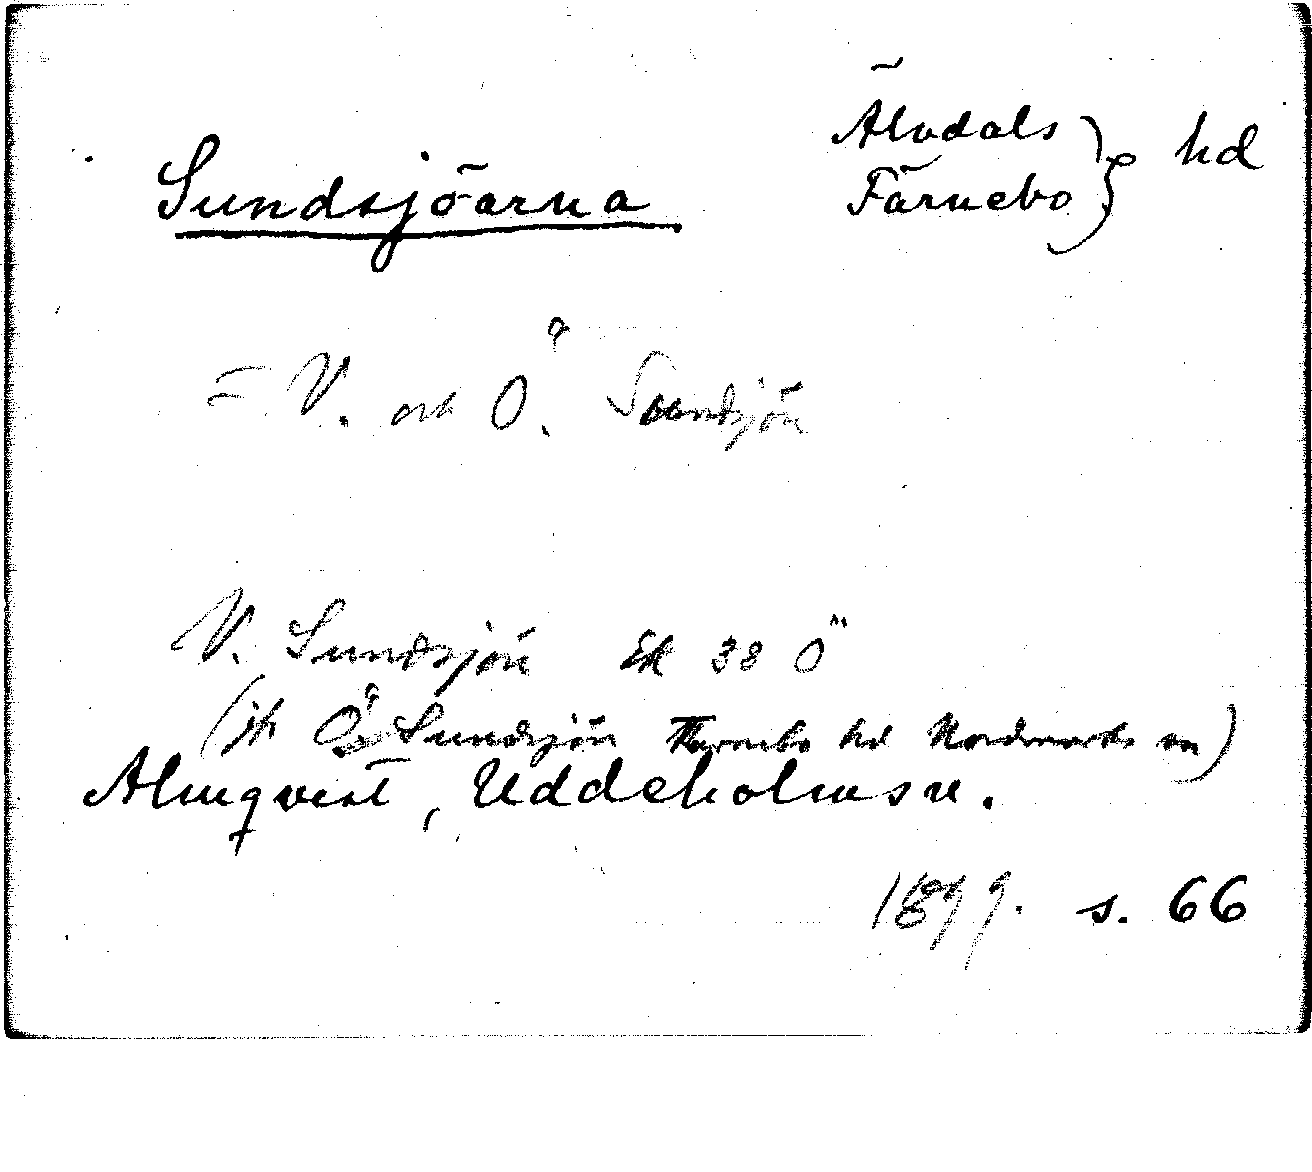 Sundsjöarna
Älvdals
Färnebo } hd
= V. och Ö. Sundsjön
V. Sundsjön Ek 38 Ö
(jfr Ö Sundsjön Färnebo hd Nordmarks sn)
Almqvist, Uddeholmsn.
1899. s. 66